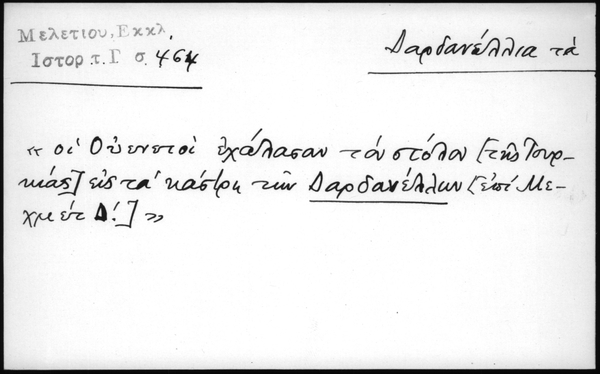 Μελετίου, Εκκλ.
Ιστορ. τ. Γ σ. 464
Δαρδανέλλια τά
« οἱ Οὐενετοὶ ἐχάλασαν τὸν στόλον [τῆς Τουρ-
κίας] εἰς τὰ κάστρη τῶν Δαρδανέλλων [ἐπὶ Με-
χμὲτ Δ'.] »